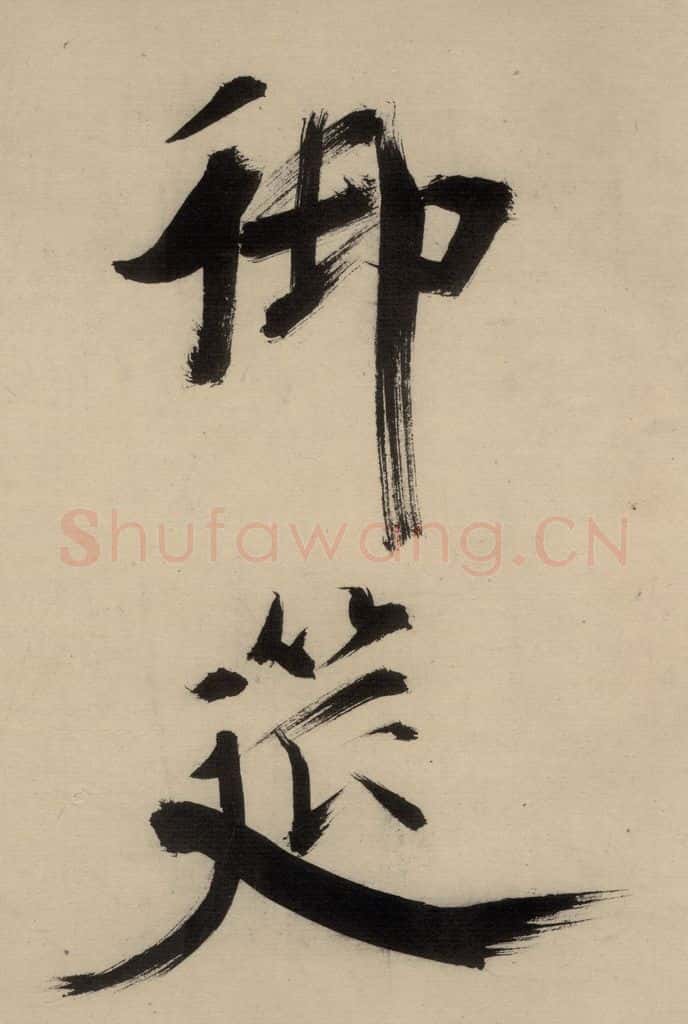 御
筵
Shufawang.CN